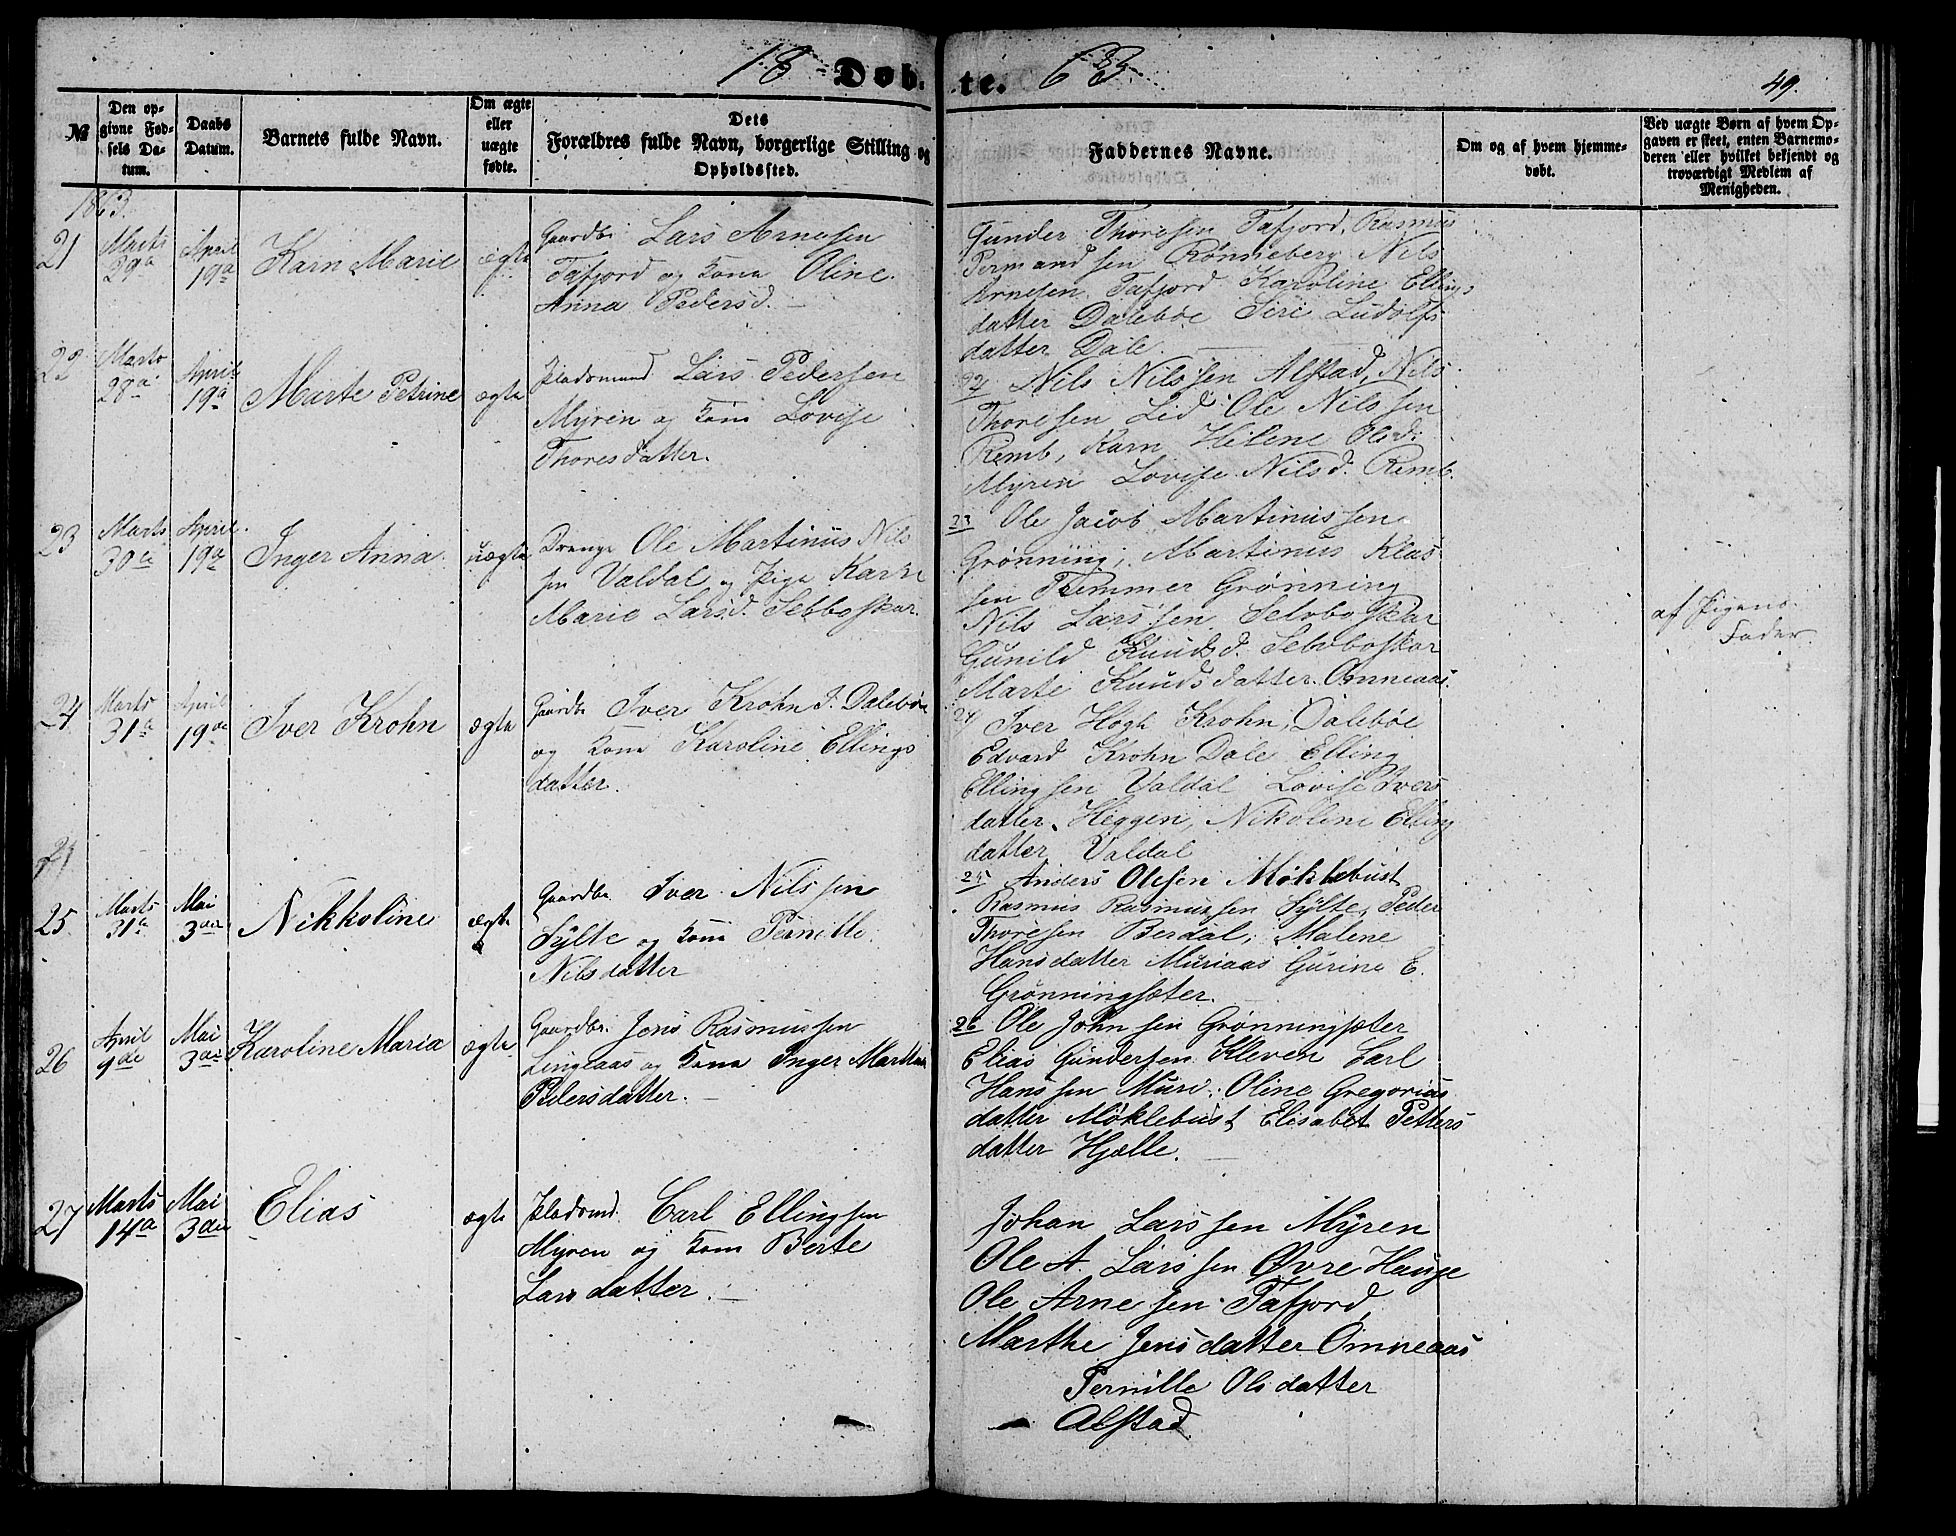 18 Døb te. 63
49.
№
Den op-
givne Fød-
sels Da-
tum.
Daabs
Datum.
Barnets fulde Navn.
Om ægte
eller
uægte
fødte.
Dets
Forældres fulde Navn, borgerlige Stilling og
Opholdssted.
Faddernes Navne.
Om og af hvem hjemme-
døbt.
Ved uægte Børn af hvem Op-
gaven er skeet, enten Barnemo-
deren eller hvilket bekjendt og
troværdigt Medlem af
Menigheden.
1863.
21
Marts
29de
April
19de
Karn Marie
ægte
Gaardbr. Lars Arnesen
Tafjord og Kone Oline
Anna Pedersd. —
Gunder Thoresen Tafjord, Rasmus
Permandsen Rønneberg Nils
Arnesen Tafjord Karoline Ellings
datter Dalebøe Siri Ludolfs
datter Dale
22
Marts
28de
April
19de
Marte Petrine
ægte
Pladsmand Lars Pedersen
Myren og Kone Lovise
Thoresdatter.
22 Nils Nilssen Alstad, Nils
Thoresen Lid Ole Nilssen
Remb, Karn Helene Olsd.
Myren Lovise Nilsd. Remb.
23
Marts
30de
April
19de
Inger Anna
uægte
Drenge Ole Martinus Nils
sen Valdal og Pige Karn
Marie Larsd. Selboskar
23 Ole Jacob Martinussen
Grønning, Martinus Klas
sen Tremmer Grønning
Nils Larssen Selboskar
Gunild Knudsd. Selboskar
Marte Knudsdatter Omneaas.
af Pigens
Fader.
24
Marts
31te
April
19de
Iver Krohn
ægte
Gaardbr Iver Krohn J. Dalebøe
og Kone Karoline Ellings
datter.
24 Iver Høgh Krohn, Dalebøe
Edvard Krohn Dale Elling
Ellingsen Valdal Lovise Ivers
datter Heggen, Nikoline Elling
datter Valdal
25
Marts
31te
Mai
3die
Nikkoline
ægte
Gaardbr Iver Nilssen
Sylte og Kone Pernille
Nilsdatter
25 Anders Olesen Møklebust
Rasmus Rasmussen Sylte, Peder
Thoresen Berdal, Malene
Hansdatter Muriaas Gurine E.
Grønningsæter.
26
April
9de
Mai
3die
Karoline Maria
ægte
Gaardbr. Jens Rasmussen
Lingaas og Kone Inger Martha
Pedersdatter. —
26 Ole Johnsen Grønningsæter
Elias Gundersen Kleven Carl
Hanssen Muri. Oline Gregorius
datter Møklebust Elisabet Petters
datter Hjelle.
27
Marts
14de
Mai
3die
Elias
ægte
Pladsmd. Carl Ellingsen
Myren og Kone Berte
Larsdatter. —
Johan Larssen Myren
Ole A. Larssen Øvre Hauge
Ole Arnesen Tafjord
Marthe Jensdatter Omneaas
Pernille Olsdatter
Alstad